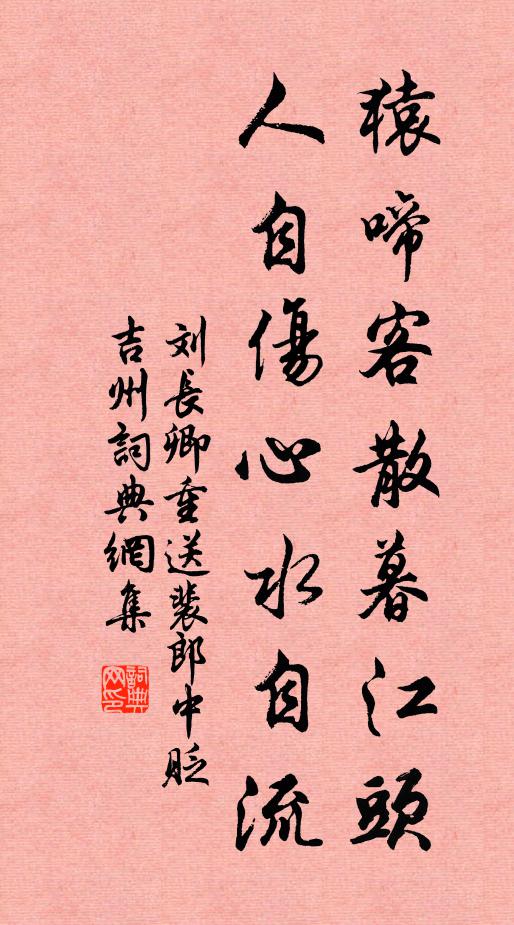 猿啼客散暮江頭
人自傷心水自流
刘長卿重送裴郎中貶
吉州詞典網集
詞典网印